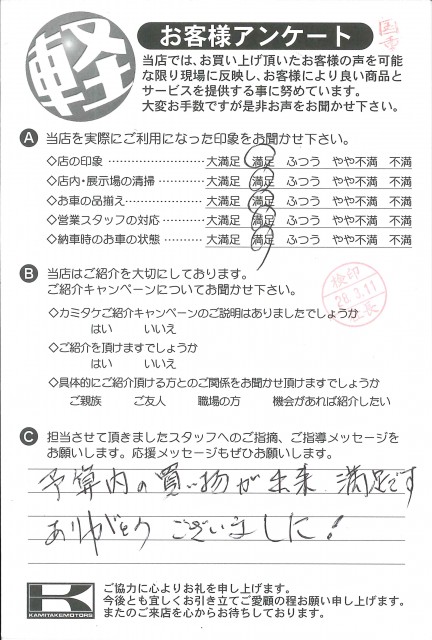 軽
お客様アンケート
当店では、お買い上げ頂いたお客様の声を可能
な限り現場に反映し、お客様により良い商品と
サービスを提供する事に努めています。
大変お手数ですが是非お声をお聞かせ下さい。
A 当店を実際にご利用になった印象をお聞かせ下さい。
◇店の印象 …………………… 大満足 満足 ふつう やや不満 不満
◇店内・展示場の清掃 ………… 大満足 満足 ふつう やや不満 不満
◇お車の品揃え………………… 大満足 満足 ふつう やや不満 不満
◇営業スタッフの対応 ………… 大満足 満足 ふつう やや不満 不満
◇納車時のお車の状態 ………… 大満足 満足 ふつう やや不満 不満
B 当店はご紹介を大切にしております。
ご紹介キャンペーンについてお聞かせ下さい。
検印
28.3.11
◇カミタケご紹介キャンペーンのご説明はありましたでしょうか
はい いいえ
◇ご紹介を頂けますでしょうか
はい いいえ
◇具体的にご紹介頂ける方とのご関係をお聞かせ頂けますでしょうか
ご親族 ご友人 職場の方 機会があれば紹介したい
C 担当させて頂きましたスタッフへのご指摘、ご指導メッセージを
お願いします。応援メッセージもぜひお願いします。
予算内の買い物が出来 満足です
ありがとう ございました!
KAMITAKEMOTORS
ご協力に心よりお礼を申し上げます。
今後とも宜しくお引き立てご愛顧の程お願い申し上げます。
またのご来店を心からお待ちしております。